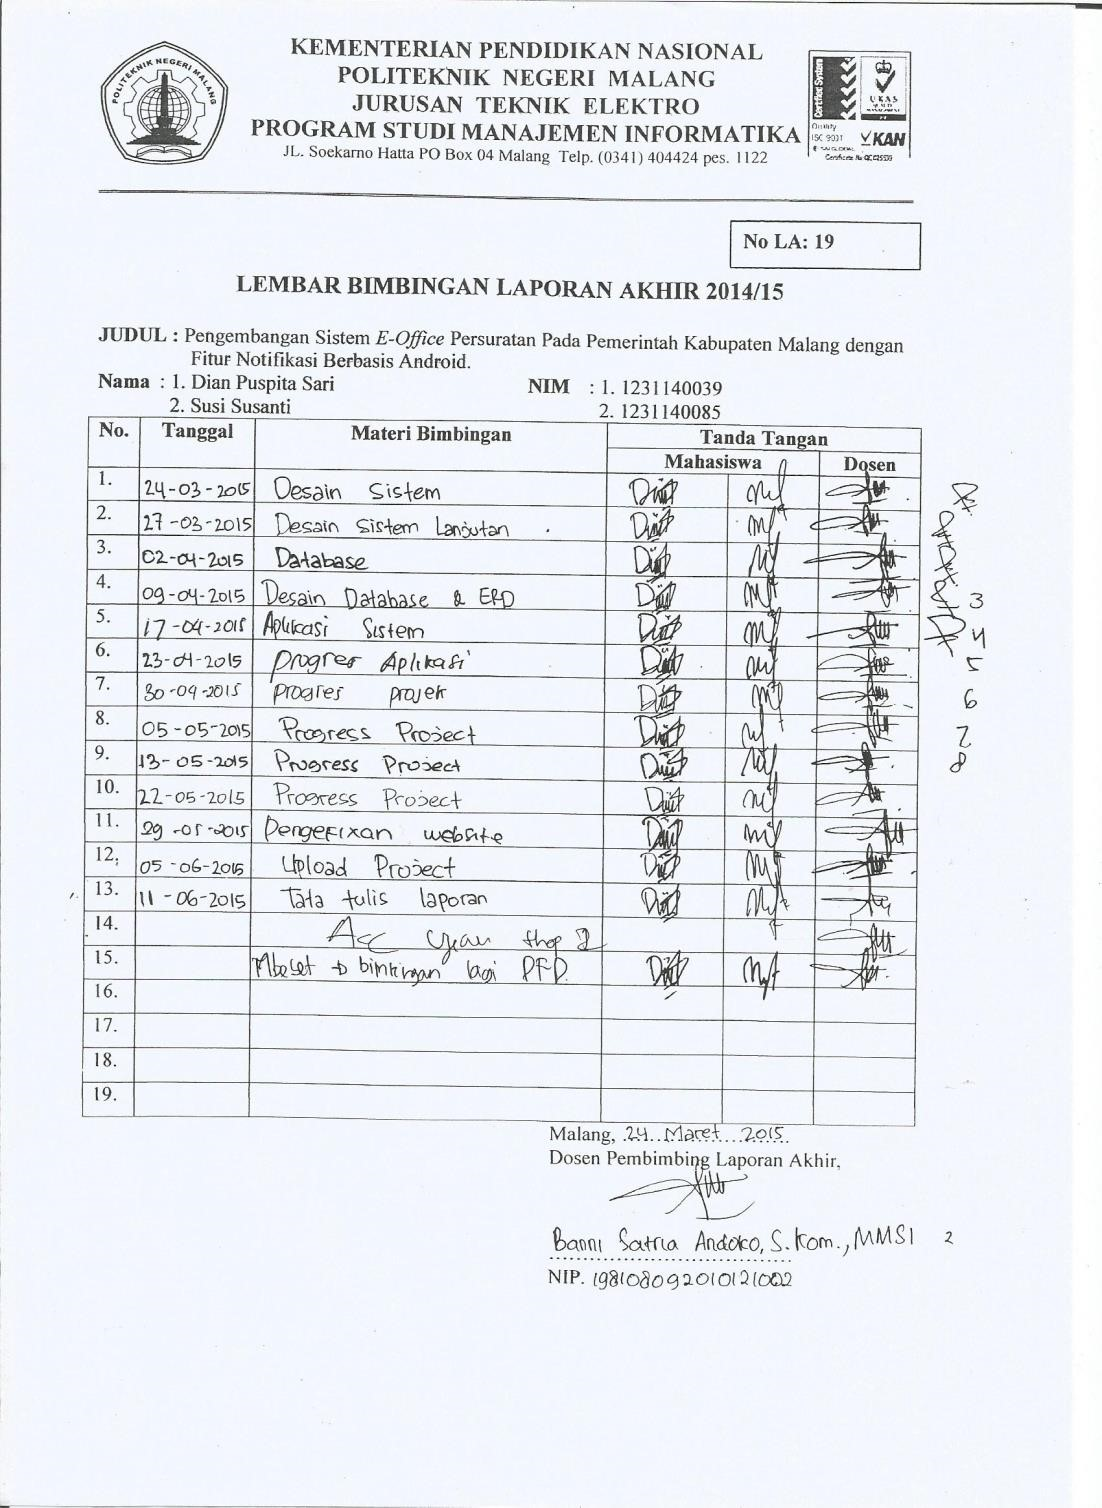 KEMENTERIAN PENDIDIKAN NASIONAL
POLITEKNIK NEGERI MALANG
JURUSAN TEKNIK ELEKTRO
PROGRAM STUDI MANAJEMEN INFORMATIKA
JL. Soekarno Hatta PO Box 04 Malang Telp. (0341) 404424 pes. 1122
POLITEKNIK NEGERI MALANG
Certified System
UKAS
Quality
ISC 9001
KAN
No LA: 19
LEMBAR BIMBINGAN LAPORAN AKHIR 2014/15
JUDUL : Pengembangan Sistem E-Office Persuratan Pada Pemerintah Kabupaten Malang dengan
Fitur Notifikasi Berbasis Android.
Nama : 1. Dian Puspita Sari NIM : 1. 1231140039
2. Susi Susanti 2. 1231140085
No. Tanggal Materi Bimbingan Tanda Tangan
Mahasiswa Dosen
1. 24-03-2015 Desain Sistem
2. 27-03-2015 Desain Sistem Lanjutan
3. 02-04-2015 Database
4. 09-04-2015 Desain Database & ERD
5. 17-04-2015 Aplikasi Sistem
6. 23-04-2015 Progres Aplikasi
7. 30-04-2015 Progres projek
8. 05-05-2015 Progress Project
9. 13-05-2015 Progress Project
10. 22-05-2015 Progress Project
11. 29-05-2015 Pengefixan website
12. 05-06-2015 Upload Project
13. 11-06-2015 Tata tulis laporan
14. Acc
15. bimbingan lagi DFD
16.
17.
18.
19.
3
4
5
6
7
8
Malang, 24 Maret 2015
Dosen Pembimbing Laporan Akhir,
Banni Satria Andoko, S.Kom., MMSI 2
NIP. 198108092010121002